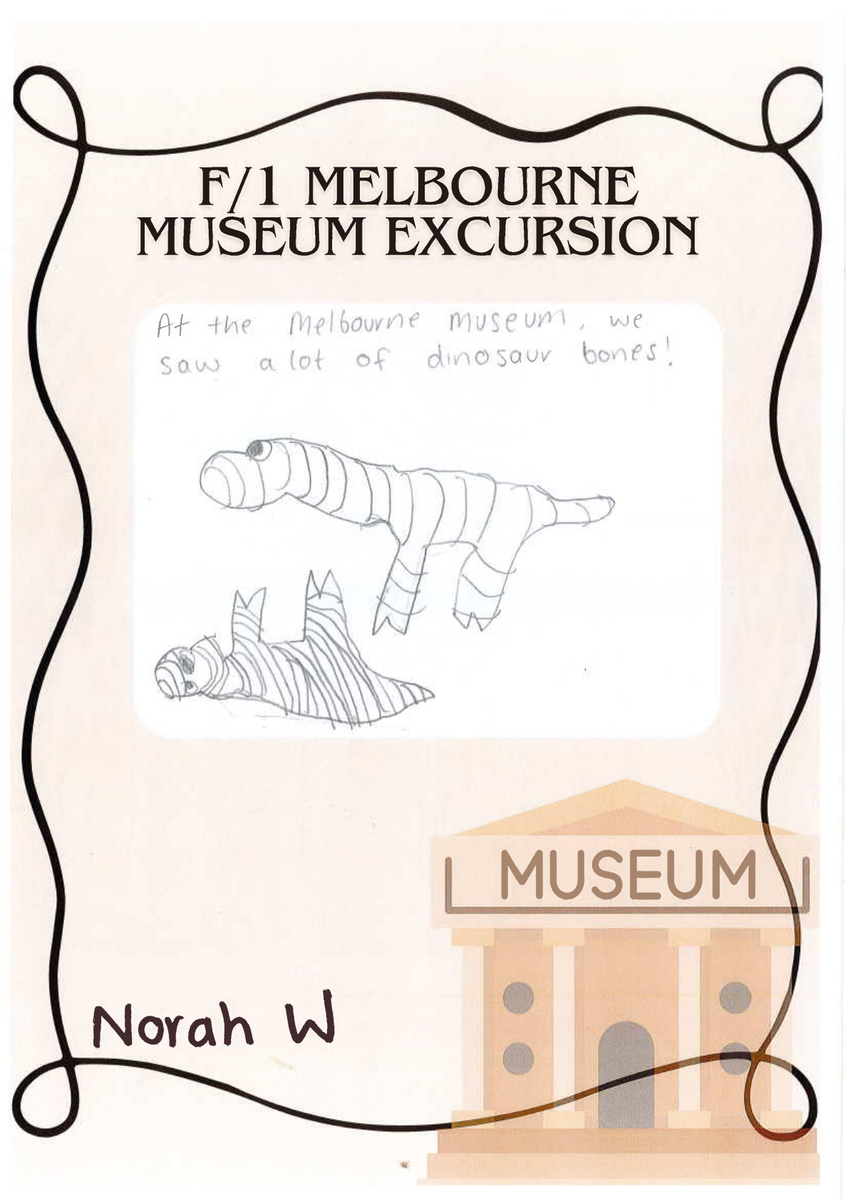 F/1 MELBOURNE
MUSEUM EXCURSION
At the Melbourne museum, we
saw a lot of dinosaur bones!
MUSEUM
Norah W